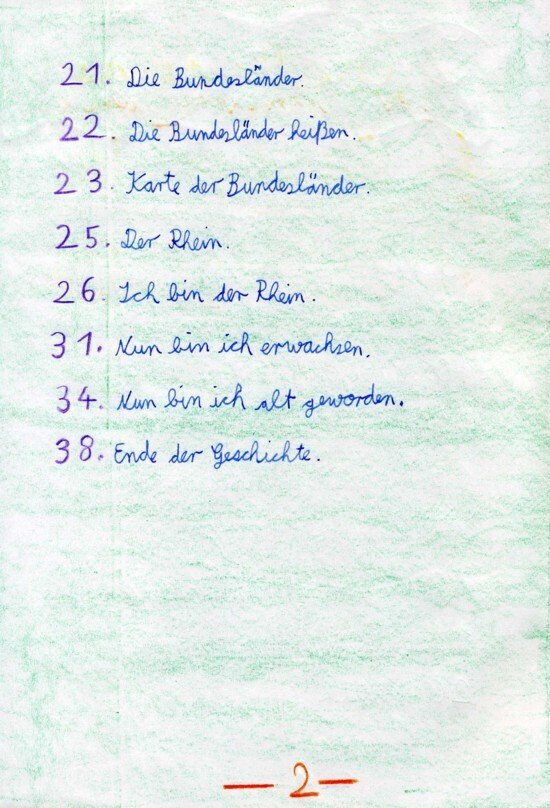 21. Die Bundesländer.
22. Die Bundesländer heißen.
23. Karte der Bundesländer.
25. Der Rhein.
26. Ich bin der Rhein.
31. Nun bin ich erwachsen.
34. Nun bin ich alt geworden.
38. Ende der Geschichte.
— 2 —